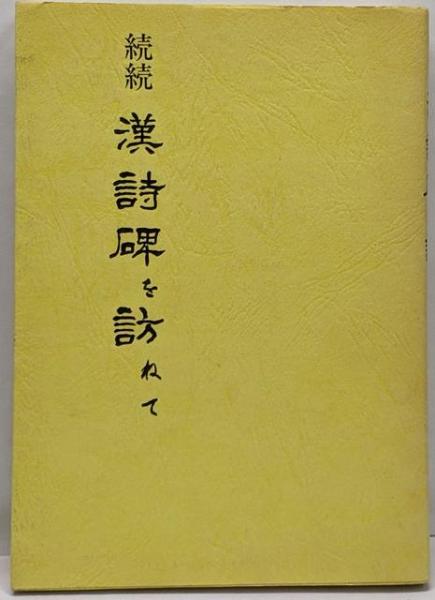 続続
漢詩碑を訪ねて